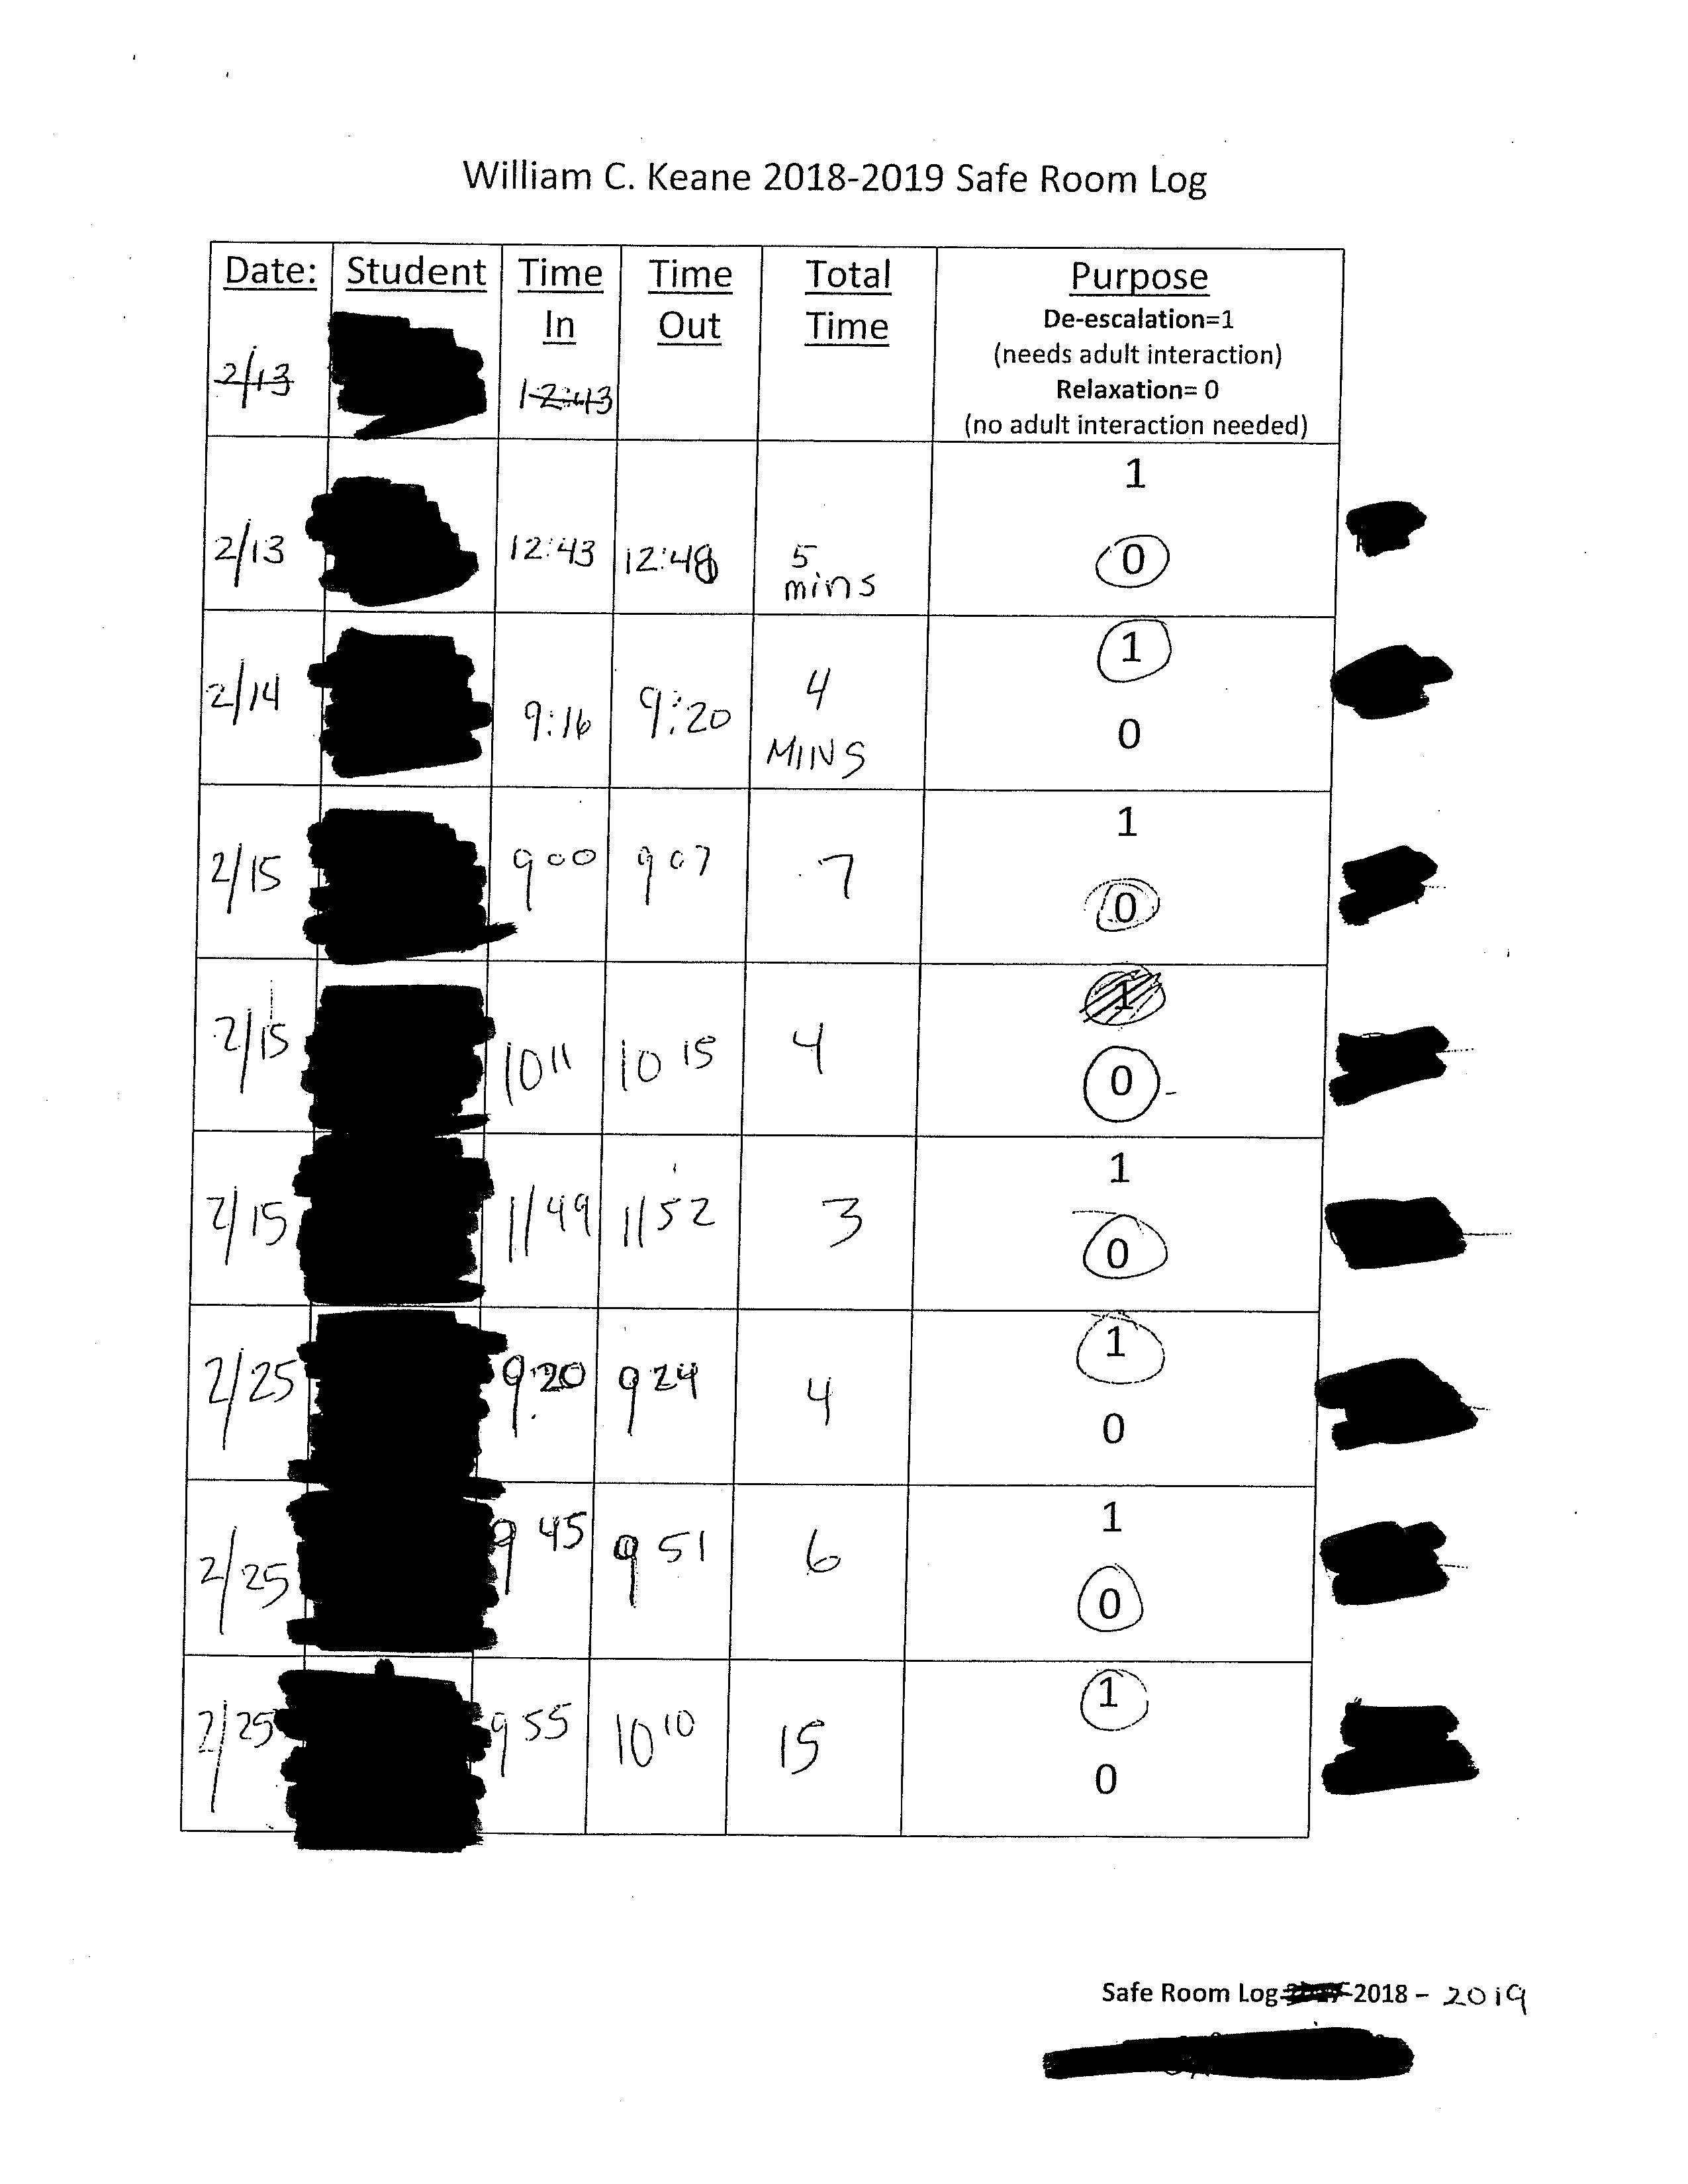 William C. Keane 2018-2019 Safe Room Log
Date: Student Time In Time Out Total Time Purpose
De-escalation=1
(needs adult interaction)
Relaxation= 0
(no adult interaction needed)
2/13 12:43
1
2/13 12:43 12:48 5 mins 0
1
2/14 9:16 9:20 4 MINS 0
1
2/15 9 00 9 07 7 0
1
2/15 10 11 10 15 4 0
1
2/15 1/49 1/52 3 0
1
2/25 9:20 9 24 4 0
1
2/25 9 45 9 51 6 0
1
2/25 9 55 10 10 15 0
Safe Room Log 2018 - 2019